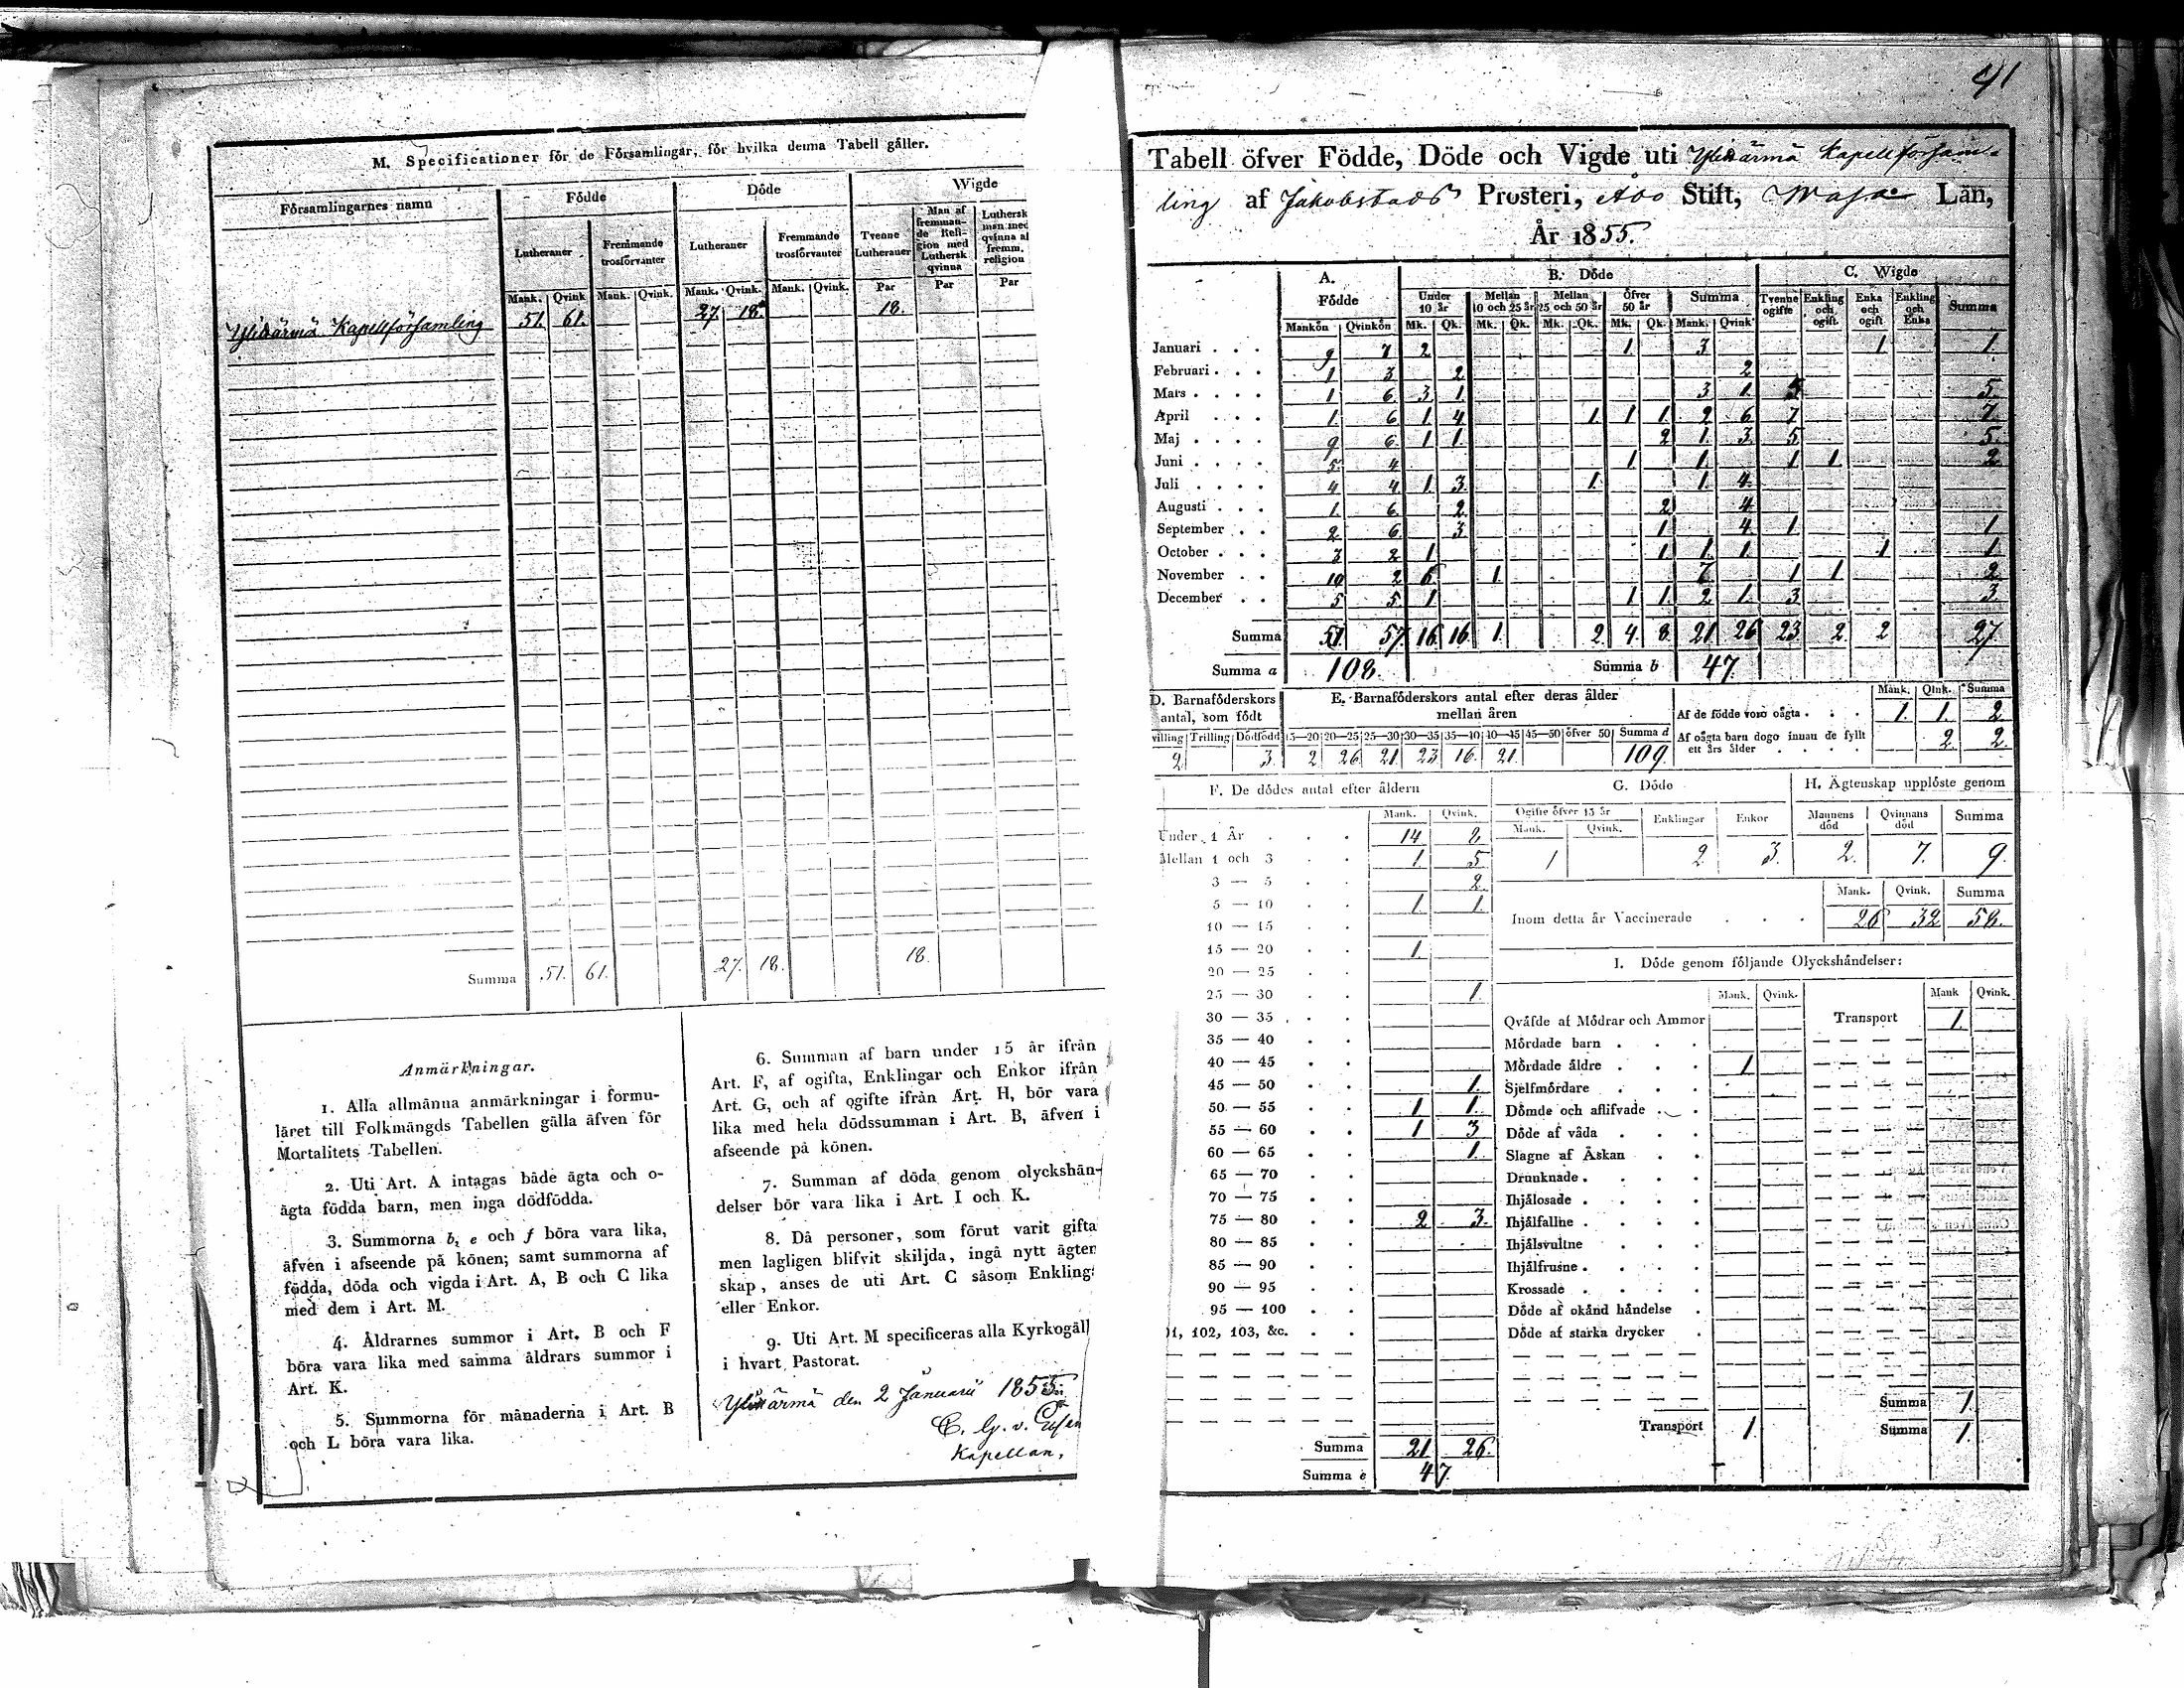 M. Specificationer för de Församlingar, för hvilka denna Tabell gäller.
Församlingarnes namn
Födde
Döde
Wigde
Lutheraner
Fremmande trosförvanter
Lutheraner
Fremmande trosförvanter
Tvenne Lutheraner
Man af fremmande Religion med Luthersk qvinna
Luthersk man med qvinna af fremm. religion
Mank. Qvink. Mank. Qvink. Mank. Qvink. Mank. Qvink. Par Par Par
Ylikärmä Kapellförsamling 51. 61. 27. 18. 18.
Summa 51. 61. 27. 18. 18.
Anmärkningar.
1. Alla allmänna anmärkningar i formu-
läret till Folkmängds Tabellen gälla äfven för
Mortalitets Tabellen.
2. Uti Art. A intagas både ägta och o-
ägta födda barn, men inga dödfödda.
3. Summorna b, e och f böra vara lika,
äfven i afseende på könen; samt summorna af
födda, döda och vigda i Art. A, B och C lika
med dem i Art. M.
4. Åldrarnes summor i Art. B och F
böra vara lika med samma åldrars summor i
Art. K.
5. Summorna för månaderna i Art. B
och L böra vara lika.
6. Summan af barn under 15 år ifrån
Art. F, af ogifta, Enklingar och Enkor ifrån
Art. G, och af ogifte ifrån Art. H, bör vara
lika med hela dödssumman i Art. B, äfven i
afseende på könen.
7. Summan af döda genom olyckshän-
delser bör vara lika i Art. I och K.
8. Då personer, som förut varit gifta
men lagligen blifvit skiljda, ingå nytt ägten
skap, anses de uti Art. C såsom Enkling
eller Enkor.
9. Uti Art. M specificeras alla Kyrkogäll
i hvart Pastorat.
Ylikärmä den 2 Januari 1855
C. G. v.
Kapellan,
41
Tabell öfver Födde, Döde och Vigde uti Ylikärmä Kapellförsam-
ling af Jakobstads Prosteri, Åbo Stift, Wasa Län,
År 1855.
A. Födde
B. Döde
C. Wigde
Under 10 år
Mellan 10 och 25 år
Mellan 25 och 50 år
Öfver 50 år
Summa
Tvenne ogifte
Enkling och ogift
Enka och ogift
Enkling och Enka
Summa
Mankön Qvinkön Mk. Qk. Mk. Qk. Mk. Qk. Mk. Qk. Mank. Qvink
Januari 9 7 2 1 3 1 1.
Februari 1 3 2 2
Mars 1 6 3 1 3 1 5 5.
April 1. 6 1 4 1 1 1 2 6 7 7.
Maj 9 6 1 1 2 1. 3 5 5.
Juni 5 4 1 1 1 1 2
Juli 4 4 1 3 1 1 4
Augusti 1 6 2 2 4
September 2 6 3 1 4 1 1
October 3 2 1 1 1 1 1 1
November 10 2 6 1 7 1 1 2
December 5 5 1 1 1 2 1 3 3
Summa 51. 57. 16 16 1. 2 4 8 21 26 23 2 2 27.
Summa a 108. Summa b 47.
D. Barnaföderskors antal, som födt
E. Barnaföderskors antal efter deras ålder mellan åren
villing Trilling Dödfödd 15—20 20—25 25—30 30—35 35—40 40—45 45—50 öfver 50 Summa d
2 3. 2 26 21 23 16. 21. 109.
Mank. Qink. Summa
Af de födde voro oägta 1. 1. 2
Af oägta barn dogo innan de fyllt ett års ålder 2 2
F. De dödes antal efter åldern
Mank. Qvink.
Under 1 År 14 2
Mellan 1 och 3 1 5
3 — 5 2
5 — 10 1 1
10 — 15
15 — 20 1
20 — 25
25 — 30 1
30 — 35
35 — 40
40 — 45
45 — 50 1
50 — 55 1 1
55 — 60 1 3
60 — 65 1
65 — 70
70 — 75
75 — 80 2 3
80 — 85
85 — 90
90 — 95
95 — 100
01, 102, 103, &c.
Summa 21 26.
Summa e 47.
G. Döde
Ogifte öfver 15 år Enklingar Enkor
Mank. Qvink.
1 2 3.
H. Ägtenskap upplöste genom
Mannens död Qvinnans död Summa
2. 7. 9.
Mank. Qvink. Summa
Inom detta år Vaccinerade 26 32 58.
I. Döde genom följande Olyckshändelser:
Mank. Qvink. Mank Qvink.
Qväfde af Mödrar och Ammor Transport 1.
Mördade barn
Mördade äldre 1
Sjelfmördare
Dömde och aflifvade
Döde af våda
Slagne af Åskan
Drunknade
Ihjälosade
Ihjälfallne
Ihjälsvultne
Ihjälfrusne
Krossade
Döde af okänd händelse
Döde af starka drycker
Summa 1.
Transport 1. Summa 1.